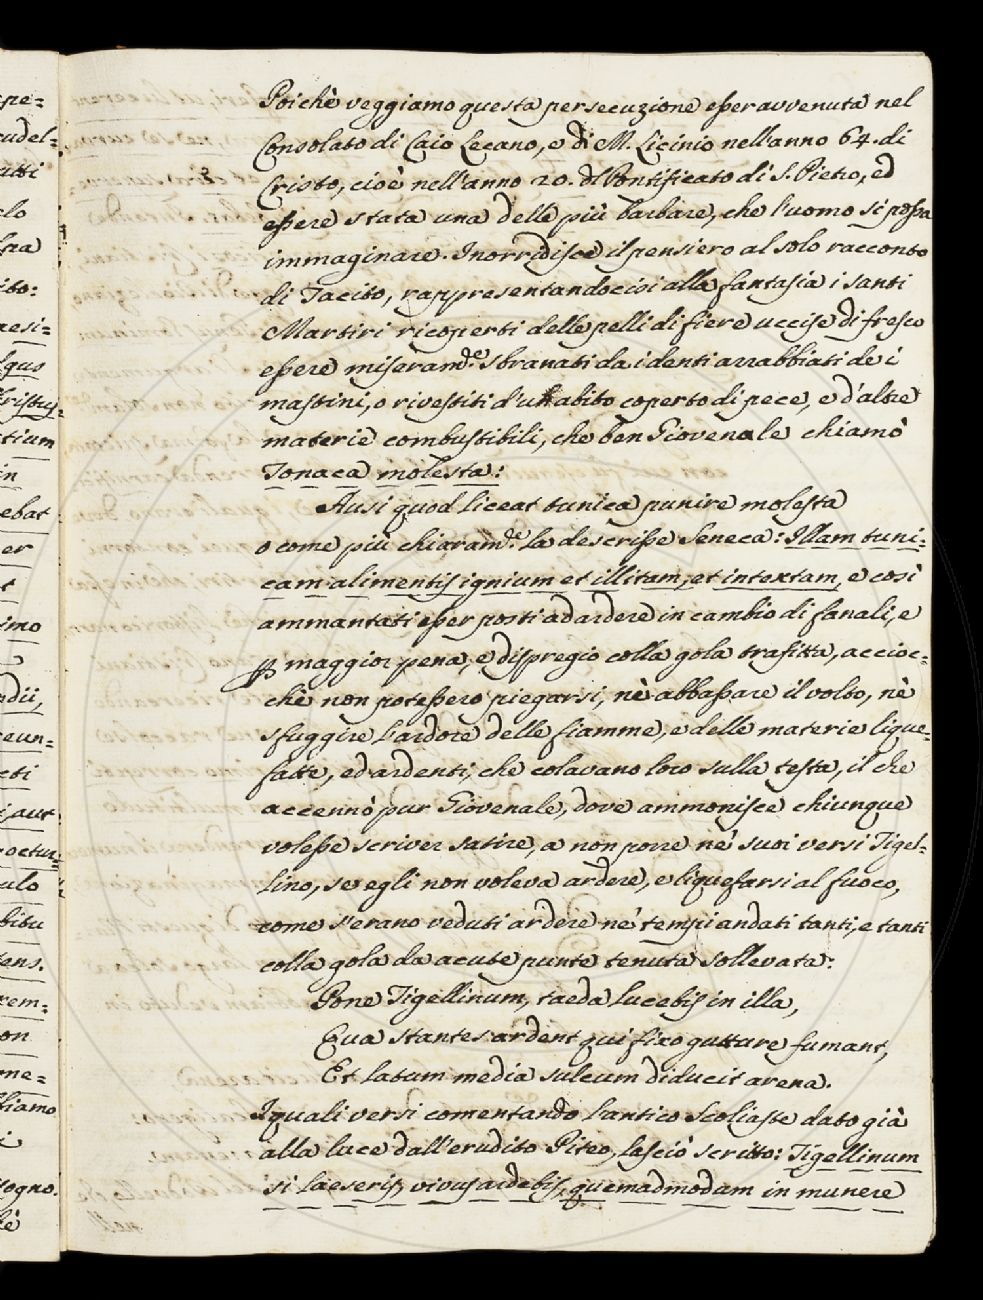 Poichè veggiamo questa persecuzione esser avvenuta nel
Consolato di Caio Lecano, e di M. Licinio nell'anno 64. di
Cristo, cioè nell'anno 20. del Pontificato di S. Pietro, ed
essere stata una delle più barbare, che l'uomo si possa
immaginare. Inorridisce il pensiero al solo racconto
di Tacito, rappresentandocisi alla fantasia i santi
Martiri ricoperti delle pelli di fiere uccise di fresco
essere miseram.te sbranati da i denti arrabbiati de i
mastini, o rivestiti d'un abito coperto di pece, e d'altre
materie combustibili, che ben Giovenale chiamò
Tonaca molesta:
Ausi quod liceat tunica punire molesta
o come più chiaram.te la descrisse Seneca: Illam tuni-
cam alimentis ignium et illitam, et intextam, e così
ammantati esser posti ad ardere in cambio di fanali, e
p maggior pena, e dispregio colla gola trafitta, accioc-
chè non potessero piegarsi, nè abbassare il volto, nè
sfuggire l'ardore delle fiamme, e delle materie lique-
fatte, ed ardenti, che colavano loro sulla testa, il che
accennò pur Giovenale, dove ammonisce chiunque
volesse scriver satire, a non porre ne' suoi versi Tigel-
lino, se egli non voleva ardere, e liquefarsi al fuoco,
come s'erano veduti ardere ne' tempi andati tanti, e tanti
colla gola da acute punte tenuta sollevata:
Pone Tigellinum, taeda lucebis in illa,
Qua stantes ardent qui fixo gutture fumant,
Et latum media sulcum diducit arena.
I quali versi comentando l'antico Scoliaste dato già
alla luce dall'erudito Piteo, lasciò scritto: Tigellinum
si laeseris, vivus ardebis, quemadmodum in munere